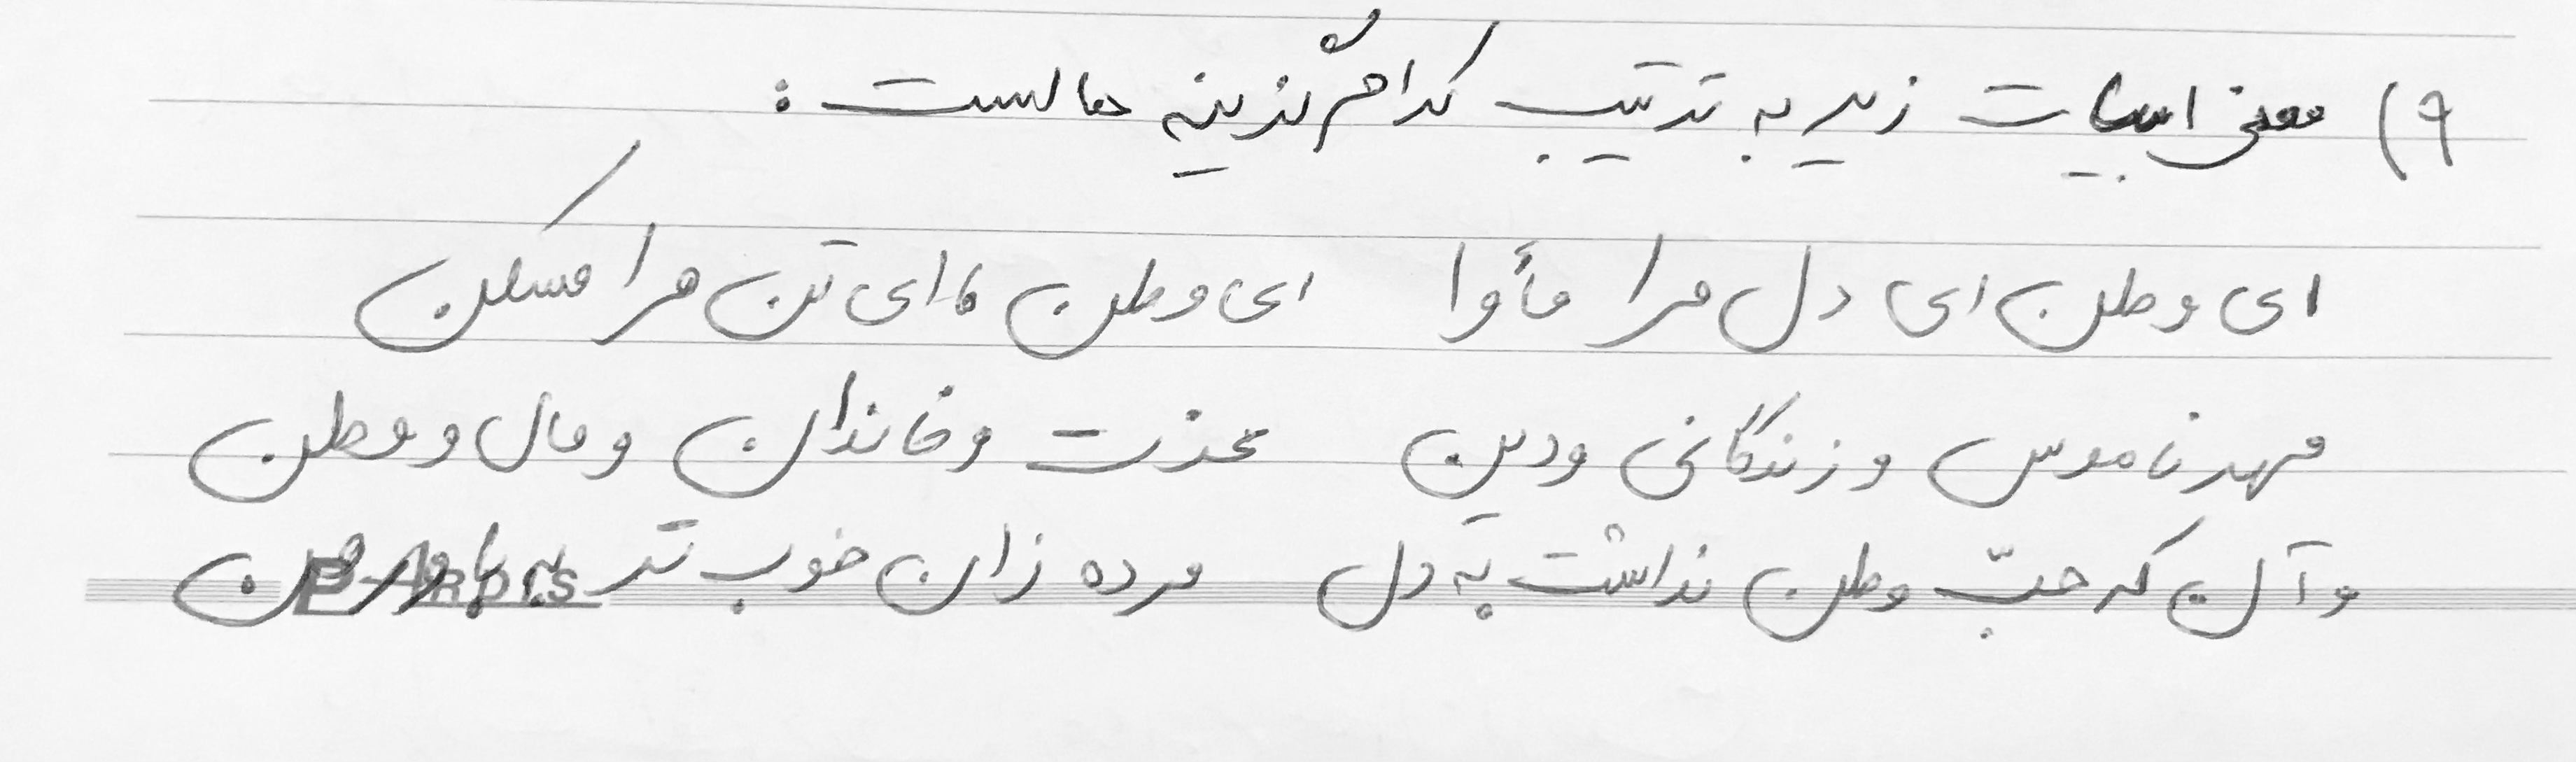 ۹) معنی ابیات زیر به ترتیب کدام گزینه هاست :
ای وطن ای دل مرا مأوا ای وطن ای تن مرا مسکن
مهر ناموس و زندگانی و دین عزت و خاندان و مال و وطن
و آن که حبّ وطن نداشت به دل مرده زان خوب تر به باور من